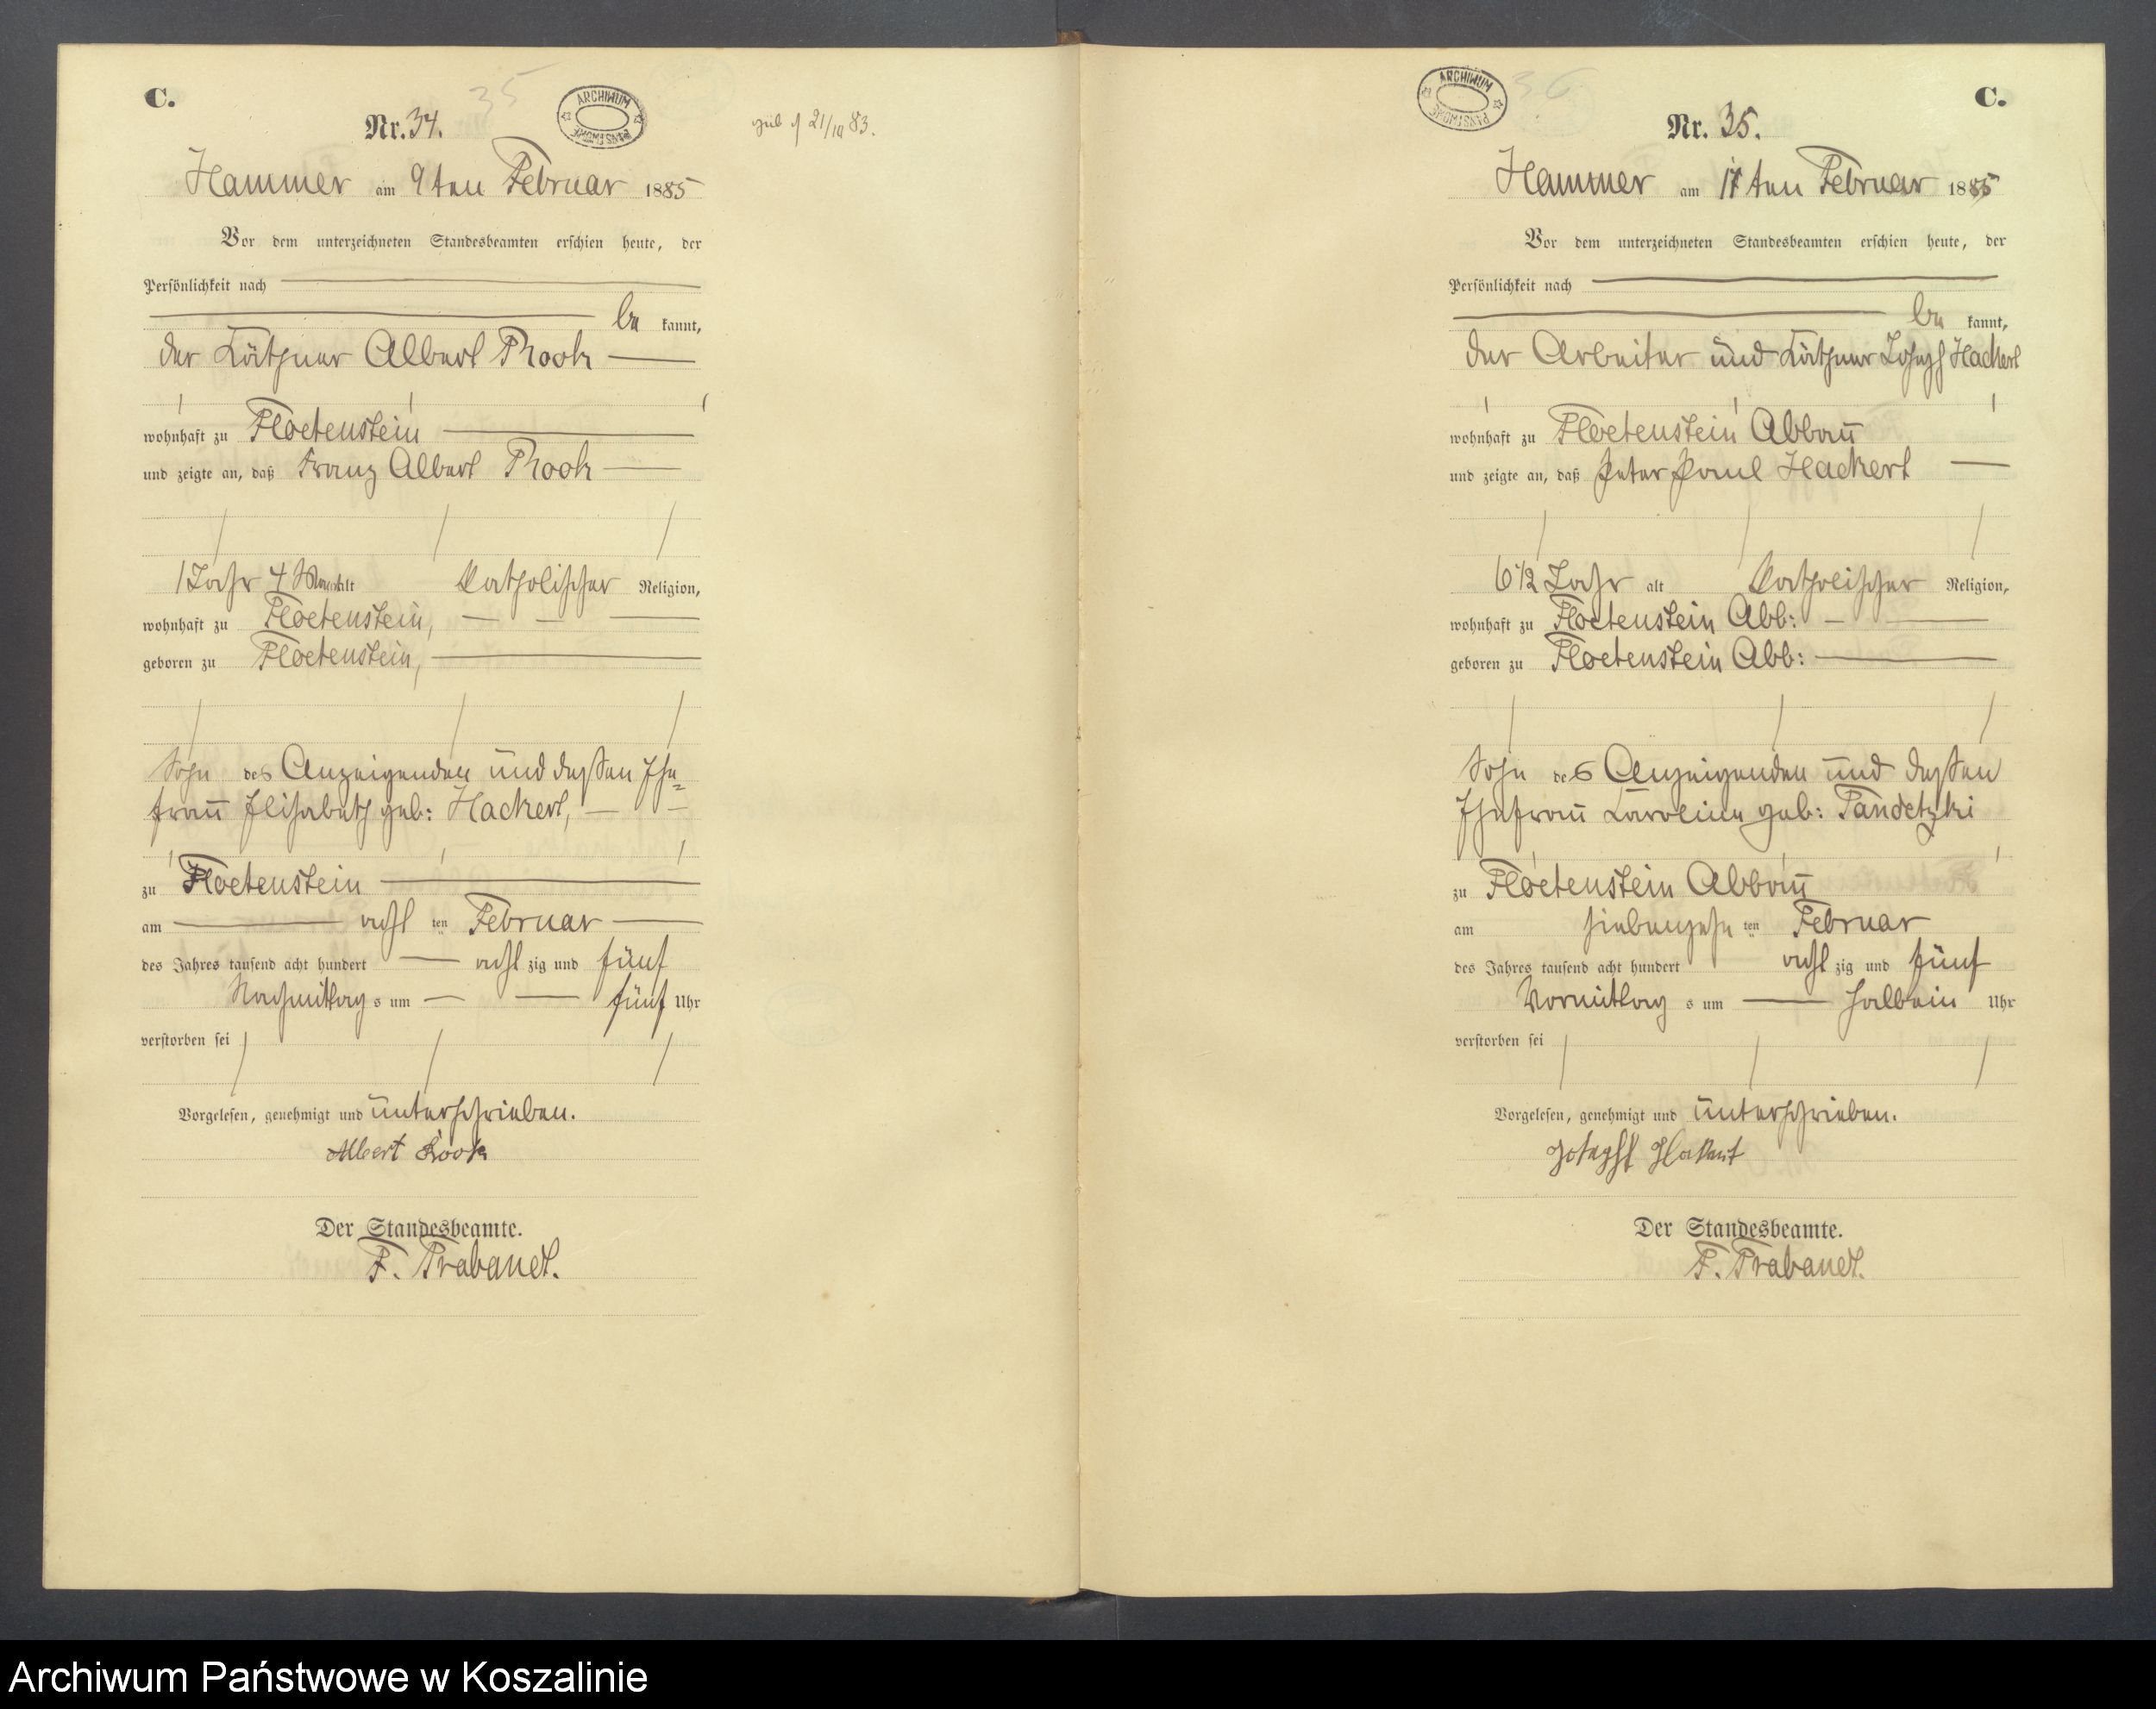 C.
35
ARCHIWUM PAŃSTWOWE
Nr. 34.
geb 21/10 83.
Hammer am 9ten Februar 1885
Vor dem unterzeichneten Standesbeamten erschien heute, der
Persönlichkeit nach
be kannt,
der Käthner Albert Rook
wohnhaft zu Floetenstein
und zeigte an, daß Franz Albert Rook
1 Jahr 4 Mon alt Katholischer Religion,
wohnhaft zu Floetenstein,
geboren zu Floetenstein,
Sohn des Anzeigenden und dessen Ehe=
frau Elisabeth geb: Hackert,
zu Floetenstein
am acht ten Februar
des Jahres tausend acht hundert acht zig und fünf
Nachmittag s um fünf Uhr
verstorben sei
Vorgelesen, genehmigt und unterschrieben.
Albert Rook
Der Standesbeamte.
F. Prabandt.
C.
36
ARCHIWUM PAŃSTWOWE
Nr. 35.
Hammer am 17ten Februar 1885
Vor dem unterzeichneten Standesbeamten erschien heute, der
Persönlichkeit nach
be kannt,
der Arbeiter und Käthner Joseph Hackert
wohnhaft zu Floetenstein Abbau
und zeigte an, daß Peter Paul Hackert
6 1/2 Jahr alt Katholischer Religion,
wohnhaft zu Floetenstein Abb:
geboren zu Floetenstein Abb:
Sohn des Anzeigenden und dessen
Ehefrau Karoline geb: Pandetzki
zu Floetenstein Abbau
am siebenzehn ten Februar
des Jahres tausend acht hundert acht zig und fünf
Vormittag s um halbein Uhr
verstorben sei
Vorgelesen, genehmigt und unterschrieben.
Joseph Hakert
Der Standesbeamte.
F. Prabandt.
Archiwum Państwowe w Koszalinie